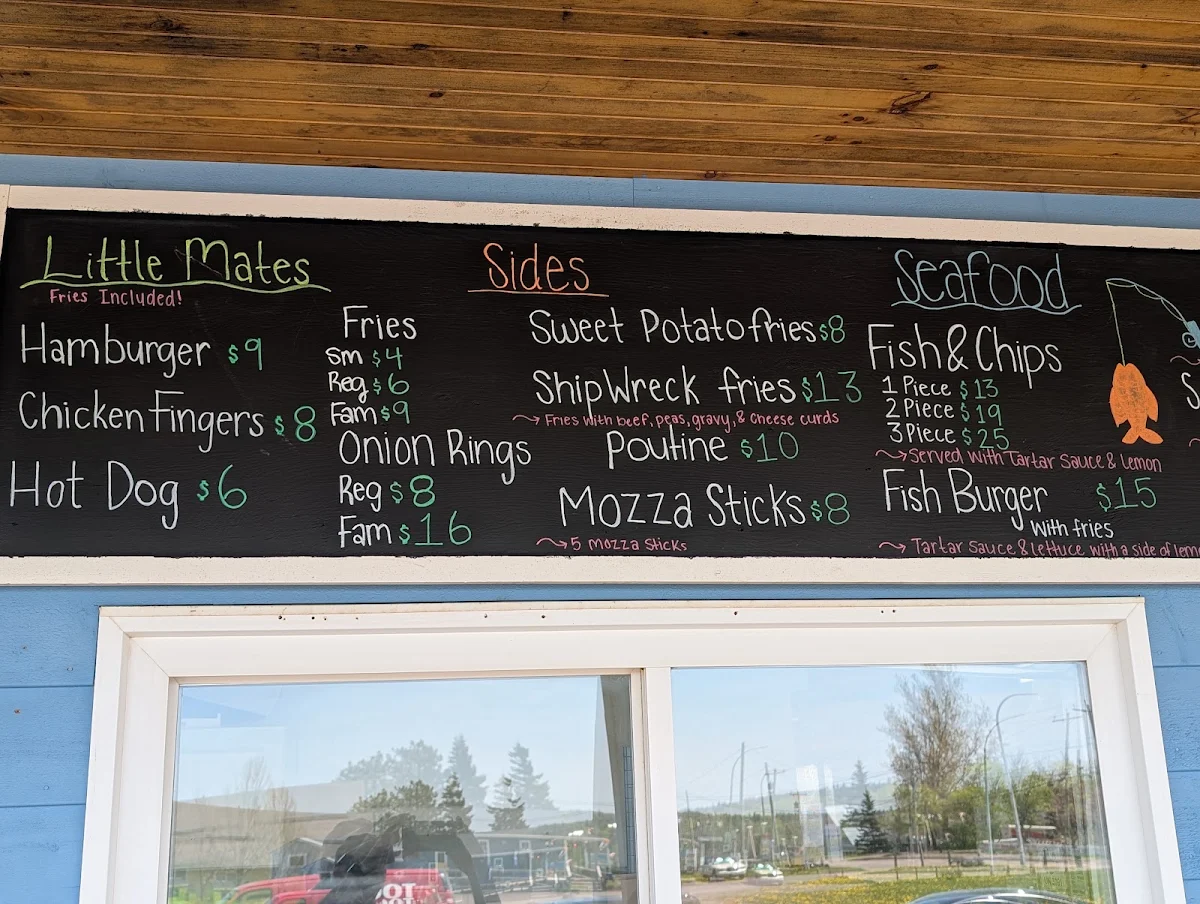 Little Mates
Fries Included!
Hamburger $9
Chicken Fingers $8
Hot Dog $6
Sides
Fries
Sm $4
Reg $6
Fam $9
Onion Rings
Reg $8
Fam $16
Sweet Potato fries $8
ShipWreck fries $13
Fries with beef, peas, gravy, & cheese curds
Poutine $10
Mozza Sticks $8
5 Mozza Sticks
Seafood
Fish & Chips
1 Piece $13
2 Piece $19
3 Piece $25
Served with Tartar Sauce & Lemon
Fish Burger $15
with fries
Tartar Sauce & lettuce with a side of